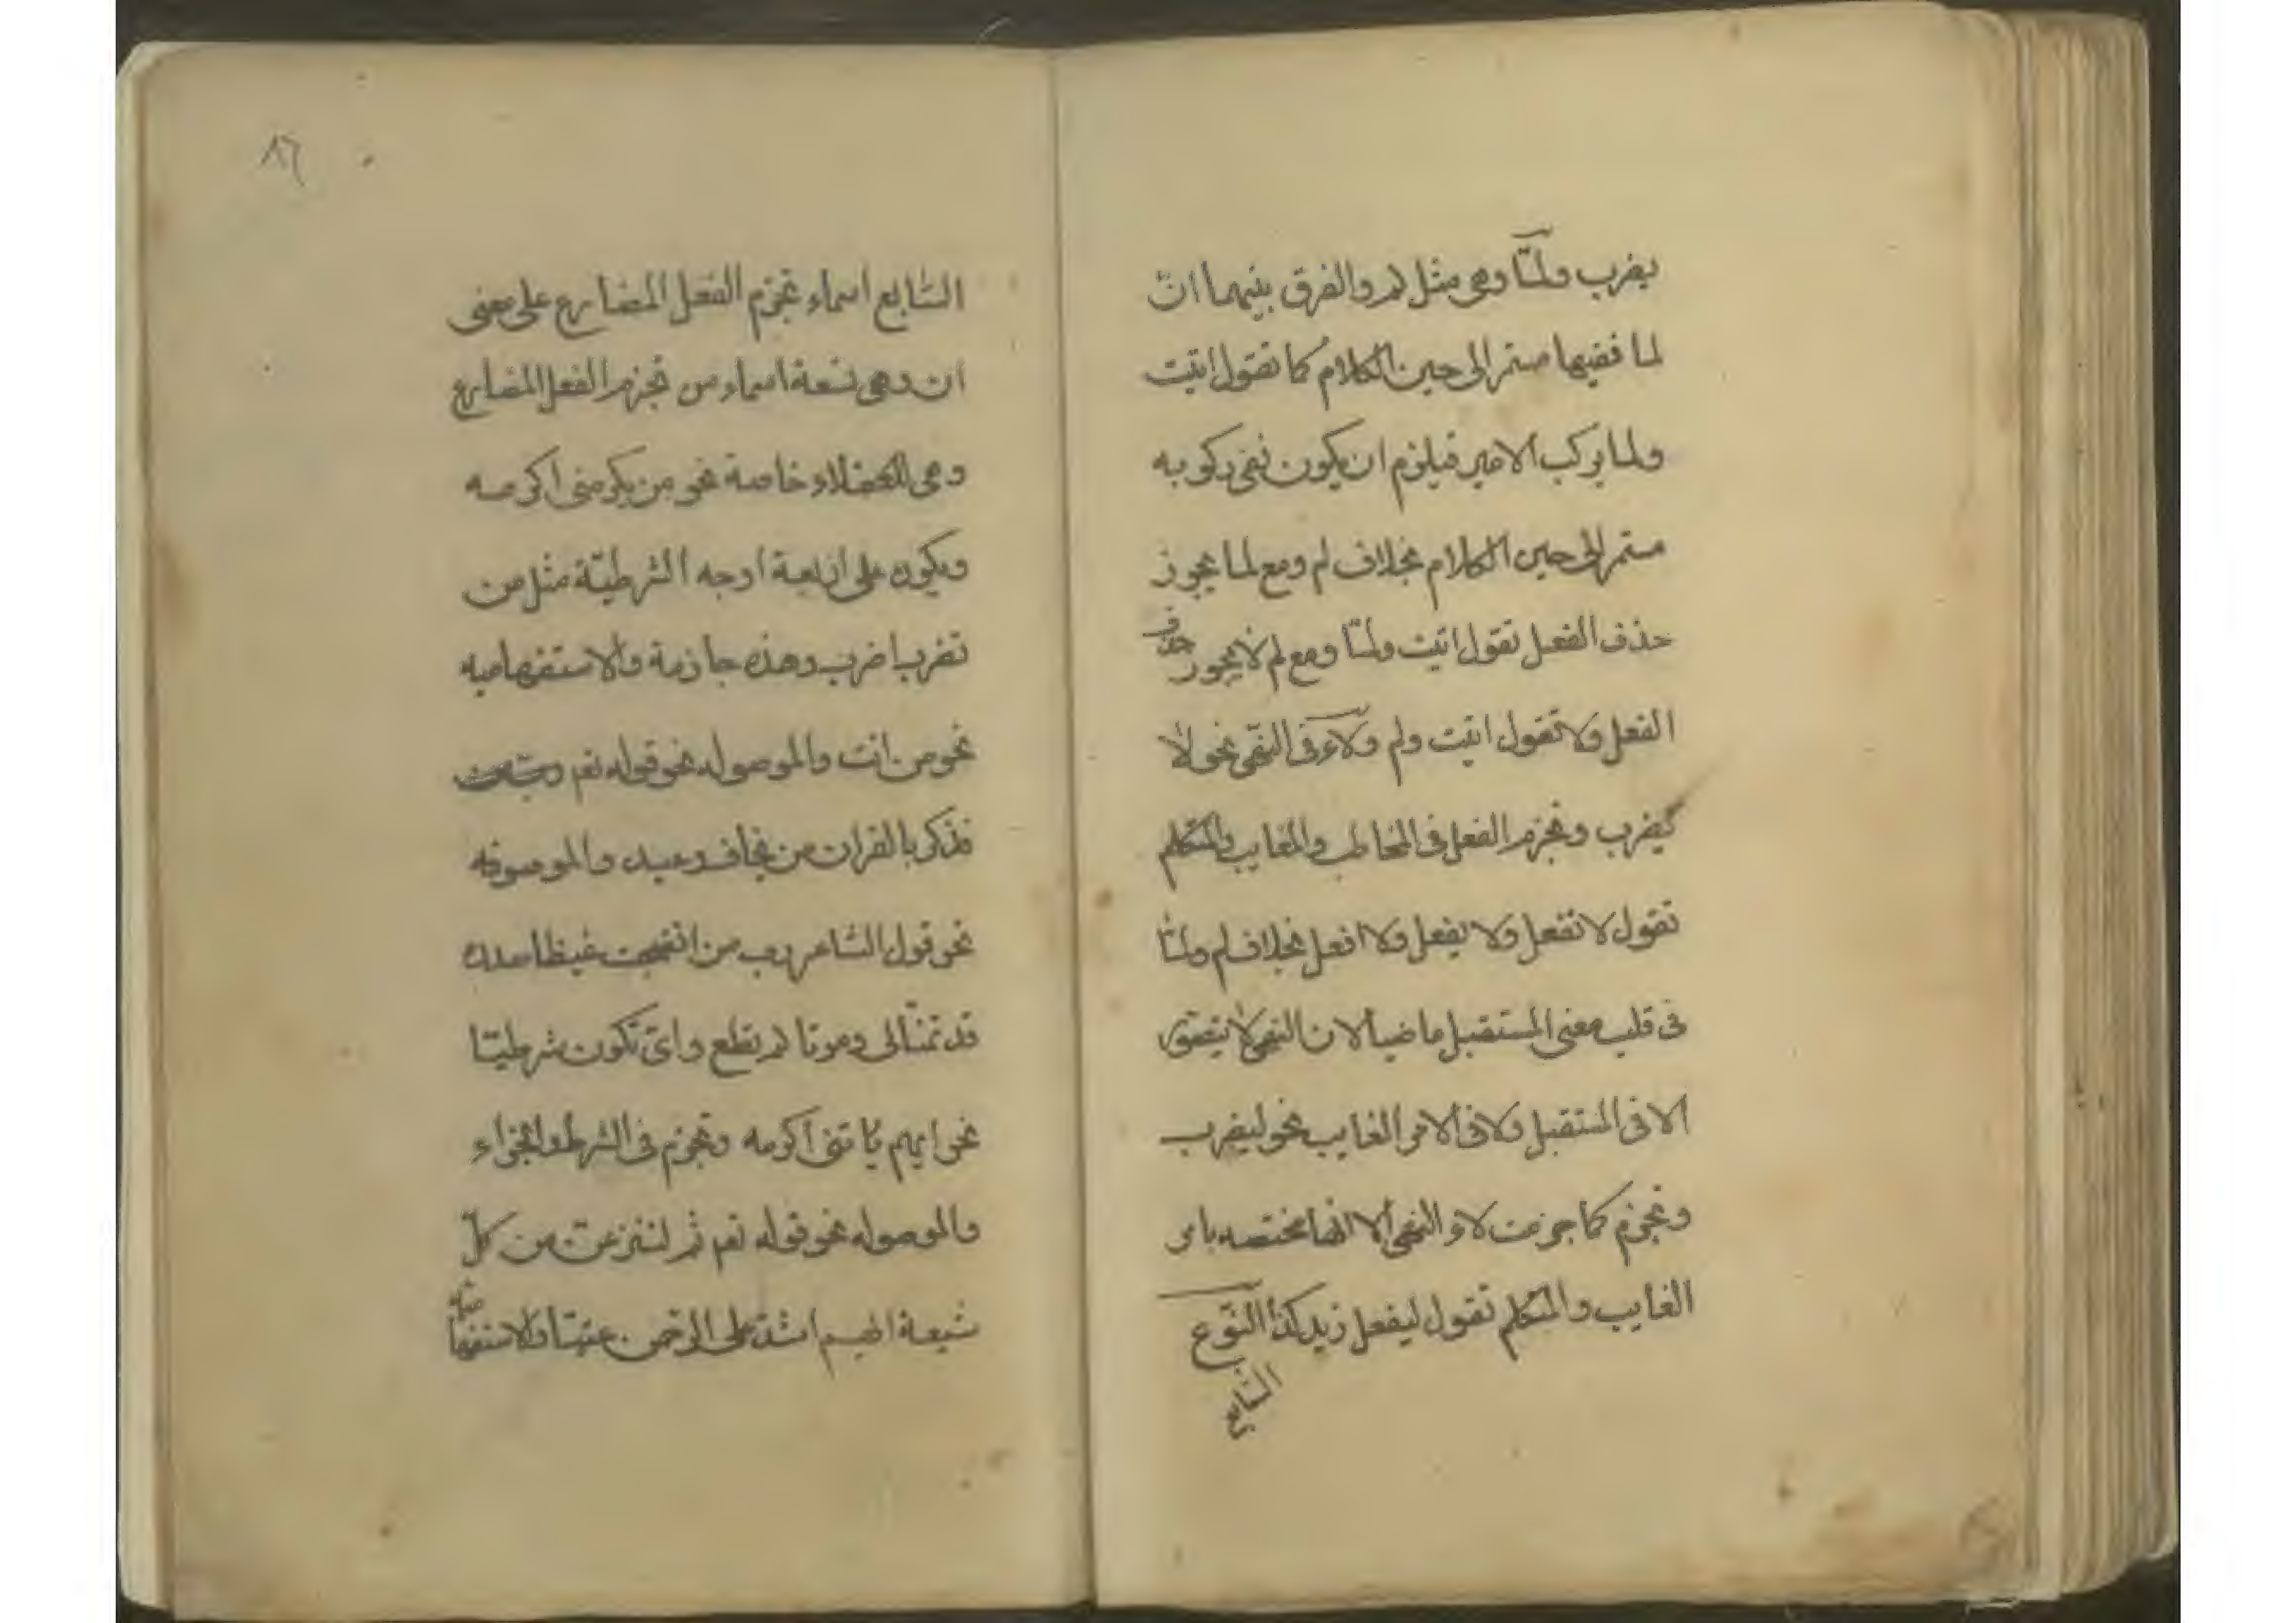 يضرب ولمّا وهى مثل لم والفرق بينهما انّ
لما ففيها مستمر الى حين الكلام كما تقول اتيت
ولما يركب الامير فيلزم ان يكون نفى ركوبه
مستمر الى حين الكلام بخلاف لم ومع لما يجوز
حذف الفعل تقول اتيت ولمّا ومع لم لا يجوز حذف
الفعل ولا تقول اتيت ولم ولاء فى النهى نحو لا
يضرب وتجزم الفعل فى المخاطب والغايب والمتكلم
تقول لا تفعل ولا يفعل ولا افعل بخلاف لم ولمّا
فى قلب معنى المستقبل ماضيا لان النهى لا يتصور
الا فى المستقبل ولا فى الامر الغايب نحو ليضرب
وتجزم كما جزمت لاء النهى الا انها مختصه بامر
الغايب والمتكلم تقول ليفعل زيد كذا النّوع
السّابع
٨٦
السّابع اسماء تجزم الفعل المضارع على معنى
ان وهى تسعة اسماء من تجزم الفعل المضارع
وهى للعقلاء خاصة نحو من يكرمنى اكرمه
ويكون على اربعة اوجه الشرطيّة مثل من
تضرب اضرب وهذه جازمة والاستفهاميه
نحو من انت والموصوله نحو قوله تعم
فذكر بالقران من يخاف وعيد والموصوفه
نحو قول الشاعر رب من انضجت غيظا صدره
قد تمنّا لى وموتا لم يطع واىّ تكون شرطيّا
نحو ايهم ياتنى اكرمه وتجزم فى الشرط والجزاء
والموصوله نحو قوله تعم ثم لننزعنّ من كلّ
شيعة ايهم اشدّ على الرّحمن عتيّا والاستفهاميّه